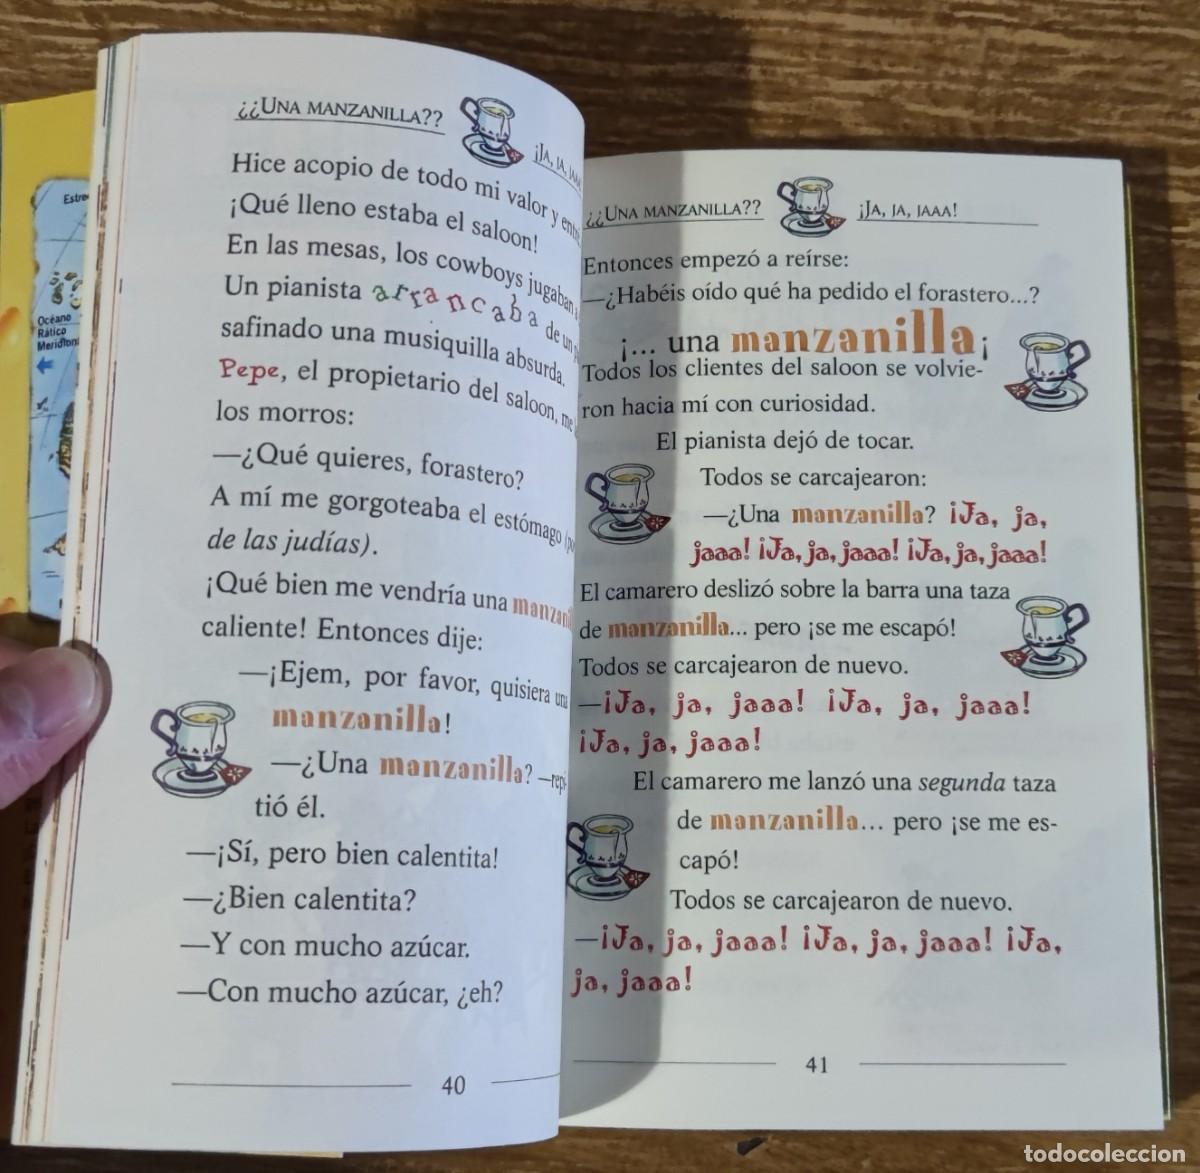 ¿¿UNA MANZANILLA??
¡JA, JA, JAAA!
Hice acopio de todo mi valor y entré.
¡Qué lleno estaba el saloon!
En las mesas, los cowboys jugaban a
Un pianista arrancaba de un
safinado una musiquilla absurda.
Pepe, el propietario del saloon, me
los morros:
—¿Qué quieres, forastero?
A mí me gorgoteaba el estómago
de las judías).
¡Qué bien me vendría una manzanilla
caliente! Entonces dije:
—¡Ejem, por favor, quisiera una
manzanilla!
—¿Una manzanilla? —repi-
tió él.
—¡Sí, pero bien calentita!
—¿Bien calentita?
—Y con mucho azúcar.
—Con mucho azúcar, ¿eh?
40
¿¿UNA MANZANILLA??
¡JA, JA, JAAA!
Entonces empezó a reírse:
—¿Habéis oído qué ha pedido el forastero...?
¡... una manzanilla¡
Todos los clientes del saloon se volvie-
ron hacia mí con curiosidad.
El pianista dejó de tocar.
Todos se carcajearon:
—¿Una manzanilla? ¡Ja, ja,
jaaa! ¡Ja, ja, jaaa! ¡Ja, ja, jaaa!
El camarero deslizó sobre la barra una taza
de manzanilla... pero ¡se me escapó!
Todos se carcajearon de nuevo.
—¡Ja, ja, jaaa! ¡Ja, ja, jaaa!
¡Ja, ja, jaaa!
El camarero me lanzó una segunda taza
de manzanilla... pero ¡se me es-
capó!
Todos se carcajearon de nuevo.
—¡Ja, ja, jaaa! ¡Ja, ja, jaaa! ¡Ja,
ja, jaaa!
41
Océano
Rático
todocoleccion